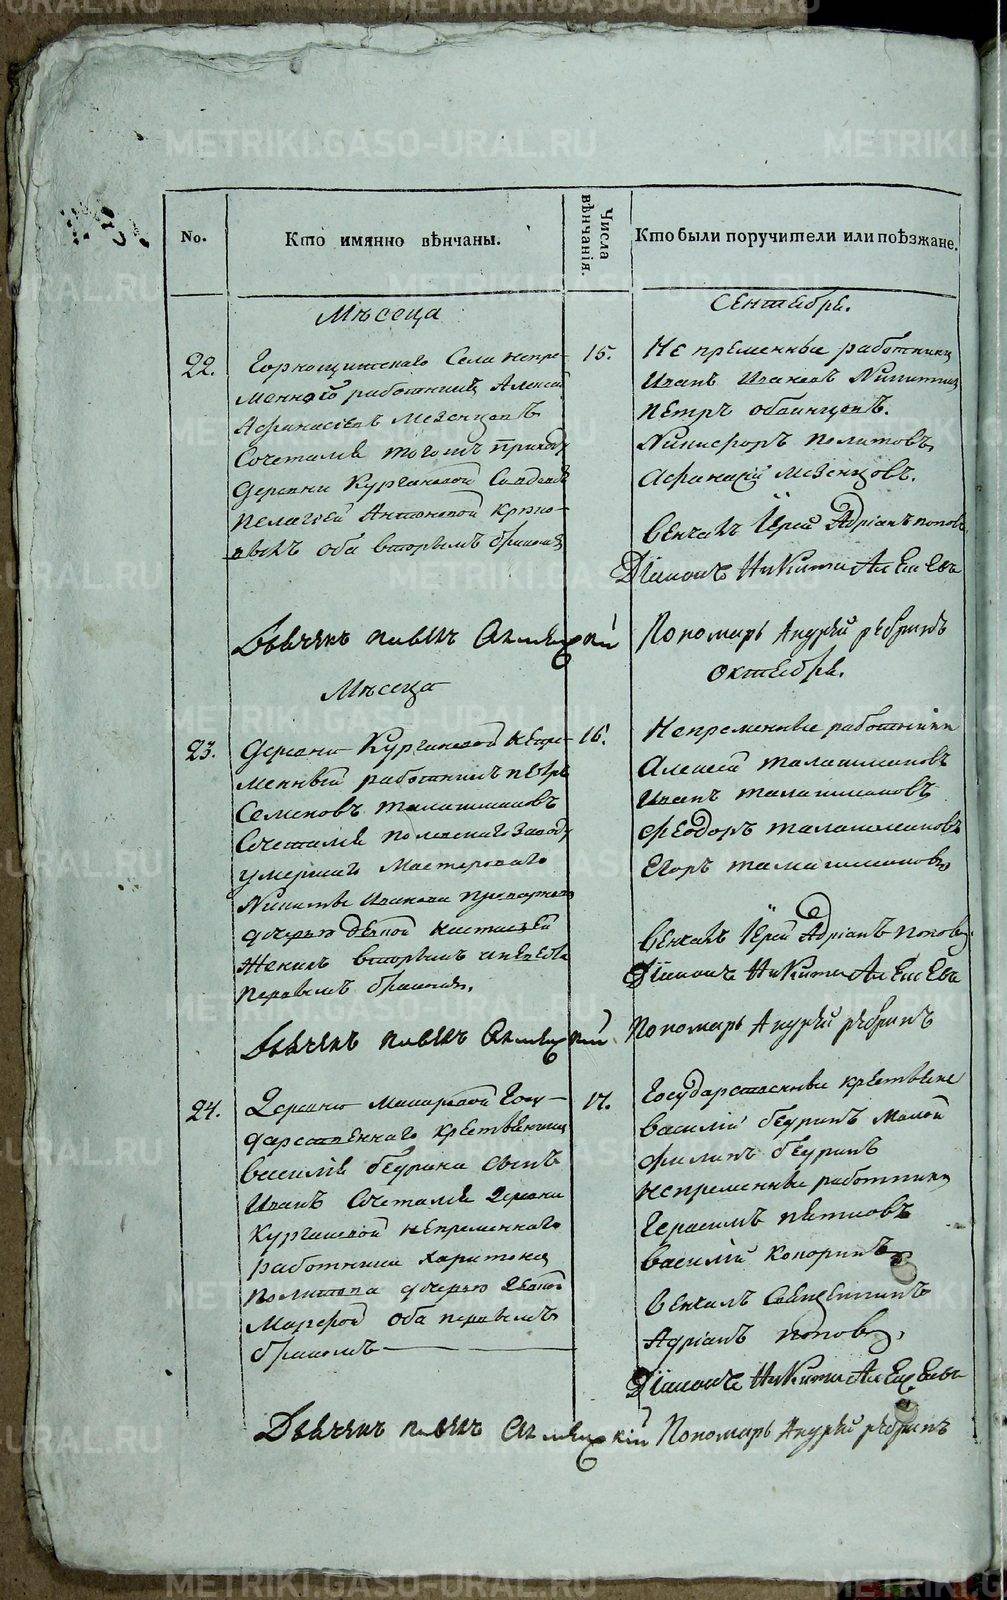 METRIKI.GASO-URAL.RU
No.
Кто имянно вѣнчаны.
Числа вѣнчанія.
Кто были поручители или поѣзжане.
Мѣсеца
Сентебре.
22.
Горнощитскаго Села непре-
менного работникъ Алексей
Афанасіевъ мезенцовъ
Сочетался тогожъ приходу
деревни Кургановой
пелагѣей Антоновой
оба вторымъ бракомъ
15.
Непременные работники
Иванъ Ивановъ
петръ обвинцовъ.
Никифоръ политовъ,
Афанасий мезенцовъ.
Венчалъ Іерей Адріанъ поповъ
Діаконъ Никита Алексеевъ
Дьячекъ павелъ
Пономарь Андрѣй рѣбринъ
Мѣсеца
октебре.
23.
деревни Кургановой непре-
менный работникъ петръ
Семеновъ талашмановъ
Сочетался полевскаго Заводу
умершаго мастероваго
Никиты Иванова
дочерью девкой настасьей
Женихъ вторымъ а невеста
первымъ бракомъ.
16.
Непременные работники
Алексей талашмановъ
Иванъ талашмановъ
Феодоръ талашмановъ
Егоръ талашмановъ
Венчалъ Іерей Адріанъ поповъ.
Діаконъ Никита Алексеевъ
Дьячекъ павелъ
Пономарь Андрѣй рѣбринъ
24.
Деревни макаровой Госу-
дарственнаго крестьянина
василія беурина сынъ
Иванъ Сочетался деревни
Кургановой непременнаго
работника харитона
политова дочерью девкой
марфой оба первымъ
бракомъ
17.
Государственные крестьяне
василій беуринъ малой
филипъ беуринъ
непременные работники
Герасимъ пятковъ
василій копоринъ
Венчалъ Священникъ
Адріанъ поповъ,
Діаконъ Никита Алексеевъ
Дьячекъ павелъ
Пономарь Андрѣй рѣбринъ